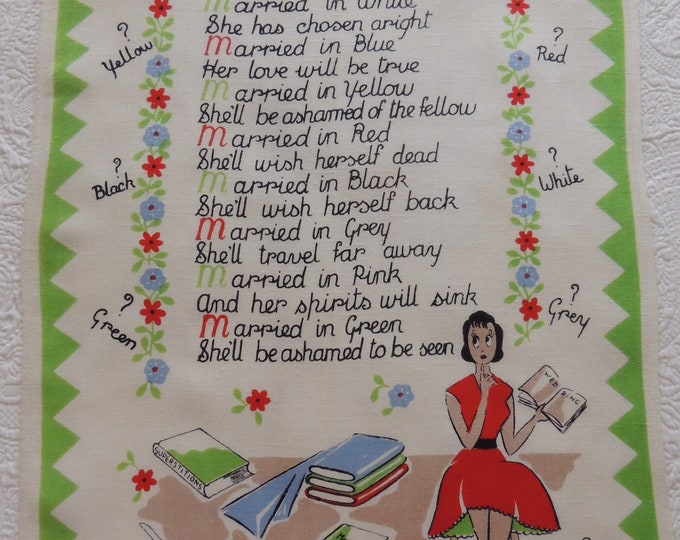 Married in White
She has chosen aright
Married in Blue
Her love will be true
Married in Yellow
She'll be ashamed of the fellow
Married in Red
She'll wish herself dead
Married in Black
She'll wish herself back
Married in Grey
She'll travel far away
Married in Pink
And her spirits will sink
Married in Green
She'll be ashamed to be seen
?
Yellow
?
Black
?
Green
?
Red
?
White
?
Grey
WEDDING
SUPERSTITIONS